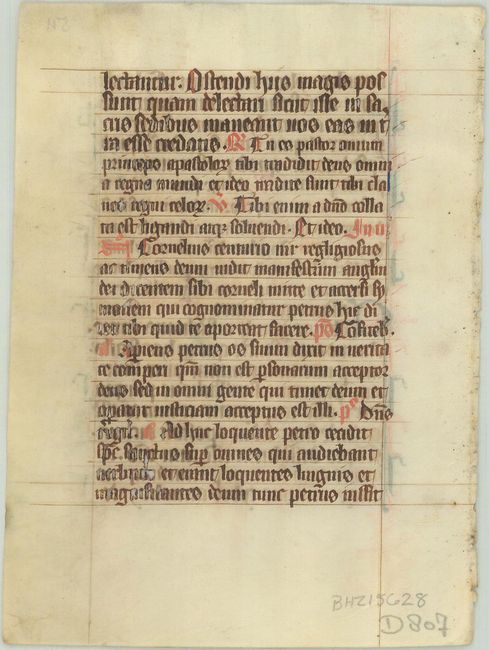 lectantur. Ostendi huis magis pos
sunt quam delectari sicut iste in sa
cris sedibus maneant uos eas in t
ra esse credatis. R Tu es pastor ouium
princeps apostolorum tibi tradidit deus omni
a regna mundi et ideo tradite sunt tibi cla
ues regni celorum. V Tibi enim a dno colla
ta est ligandi atque soluendi. Et ideo.
Cornelius centurio uir regligiosus
ac timens deum uidit manifestum anglm
dei dicentem sibi corneli mitte et accersi sy
monem qui cognominatur petrus hic di
cet tibi quid te aporteat facere. ps
Apiens petrus os suum dixit in uerita
te comperi qm non est personarum acceptor
deus sed in omni gente qui timet deum et
operatur iusticiam acceptus est illi. ps Dns
regn. Ad huc loquente petro cecidit
spc sanctus super omnes qui audiebant
uerbum et erant loquentes linguis et
magnificantes deum tunc petrus iussit
BHZ15G28
D807